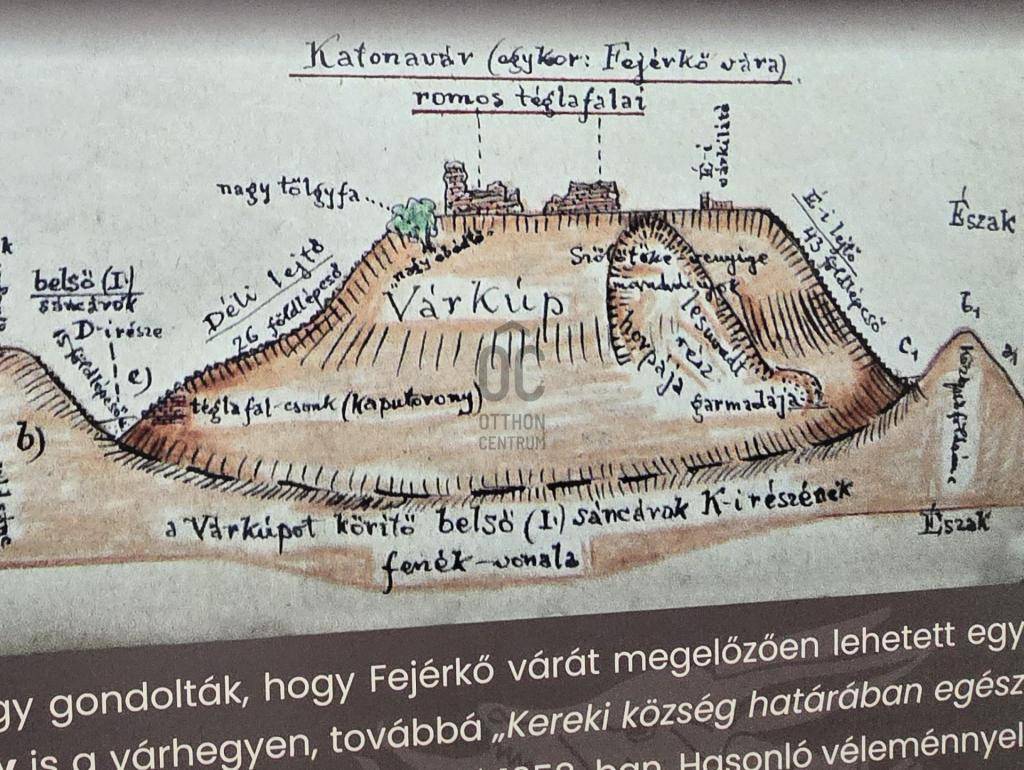 Katonavár (egykor: Fejérkő vára)
romos téglafalai
É-i
várkilátó
nagy tölgyfa....
É-i lejtő
43 földlépcső
Észak
belső (I.)
sáncárok
D-i része
15 földlépcső
Déli lejtő
26 földlépcső
"nagy óbástó"
Várkúp
Szőlőtőke venyige
hovpája
lesuvadt
rész
garmadája
e)
téglafal-csonk (kaputorony)
b)
c1
b1
a Várkúpot körítő belső (I.) sáncárok K-i részének
fenék-vonala
Észak
OC
OTTHON
CENTRUM
gy gondolták, hogy Fejérkő várát megelőzően lehetett egy
y is a várhegyen, továbbá „Kereki község határában egész
Hasonló véleménnyel